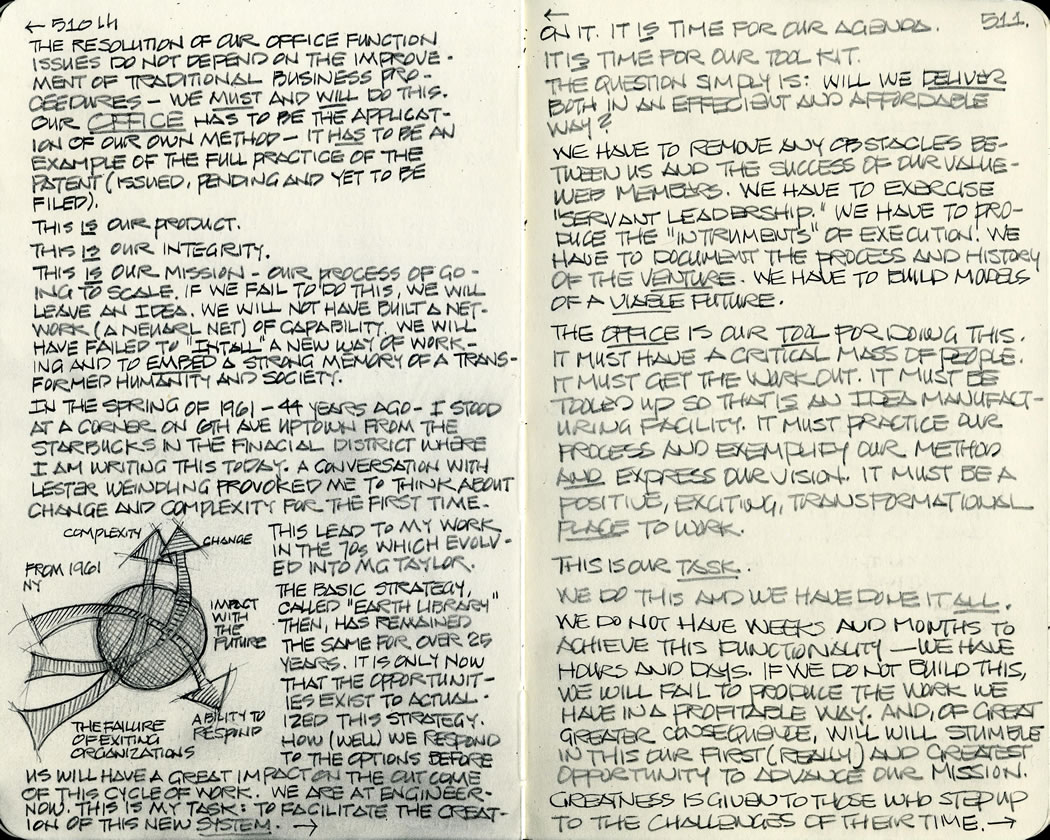 ← 510 Lh
THE RESOLUTION OF OUR OFFICE FUNCTION
ISSUES DO NOT DEPEND ON THE IMPROVE-
MENT OF TRADITIONAL BUSINESS PRO-
CEEDURES — WE MUST AND WILL DO THIS.
OUR OFFICE HAS TO BE THE APPLICAT-
ION OF OUR OWN METHOD — IT HAS TO BE AN
EXAMPLE OF THE FULL PRACTICE OF THE
PATENT (ISSUED, PENDING AND YET TO BE
FILED).
THIS IS OUR PRODUCT.
THIS IS OUR INTEGRITY.
THIS IS OUR MISSION - OUR PROCESS OF GO-
ING TO SCALE. IF WE FAIL TO DO THIS, WE WILL
LEAVE AN IDEA. WE WILL NOT HAVE BUILT A NET-
WORK (A NEUARL NET) OF CAPABILITY. WE WILL
HAVE FAILED TO "INTALL" A NEW WAY OF WORK-
ING AND TO EMBED A STRONG MEMORY OF A TRANS-
FORMED HUMANITY AND SOCIETY.
IN THE SPRING OF 1961 - 44 YEARS AGO - I STOOD
AT A CORNER ON 6TH AVE UPTOWN FROM THE
STARBUCKS IN THE FINACIAL DISTRICT WHERE
I AM WRITING THIS TODAY. A CONVERSATION WITH
LESTER WEINDLING PROVOKED ME TO THINK ABOUT
CHANGE AND COMPLEXITY FOR THE FIRST TIME.
COMPLEXITY
CHANGE
FROM 1961
NY
IMPACT
WITH
THE
FUTURE
ABILITY TO
RESPOND
THE FAILURE
OF EXITING
ORGANIZATIONS
THIS LEAD TO MY WORK
IN THE 70s WHICH EVOLV-
ED INTO MG TAYLOR.
THE BASIC STRATEGY,
CALLED "EARTH LIBRARY"
THEN, HAS REMAINED
THE SAME FOR OVER 25
YEARS. IT IS ONLY NOW
THAT THE OPPORTUNIT-
IES EXIST TO ACTUAL-
IZED THIS STRATEGY.
HOW (WELL) WE RESPOND
TO THE OPTIONS BEFORE
US WILL HAVE A GREAT IMPACT ON THE OUTCOME
OF THIS CYCLE OF WORK. WE ARE AT ENGINEER-
NOW. THIS IS MY TASK: TO FACILITATE THE CREAT-
ION OF THIS NEW SYSTEM. →
← 511.
ON IT. IT IS TIME FOR OUR AGENDA.
IT IS TIME FOR OUR TOOL KIT.
THE QUESTION SIMPLY IS: WILL WE DELIVER
BOTH IN AN EFFECIENT AND AFFORDABLE
WAY?
WE HAVE TO REMOVE ANY OBSTACLES BE-
TWEEN US AND THE SUCCESS OF OUR VALUE-
WEB MEMBERS. WE HAVE TO EXERCISE
"SERVANT LEADERSHIP." WE HAVE TO PRO-
DUCE THE "INTRUMENTS" OF EXECUTION. WE
HAVE TO DOCUMENT THE PROCESS AND HISTORY
OF THE VENTURE. WE HAVE TO BUILD MODELS
OF A VIABLE FUTURE.
THE OFFICE IS OUR TOOL FOR DOING THIS.
IT MUST HAVE A CRITICAL MASS OF PEOPLE.
IT MUST GET THE WORK OUT. IT MUST BE
TOOLED UP SO THAT IS AN IDEA MANUFACT-
URING FACILITY. IT MUST PRACTICE OUR
PROCESS AND EXEMPLIFY OUR METHOD
AND EXPRESS OUR VISION. IT MUST BE A
POSITIVE, EXCITING, TRANSFORMATIONAL
PLACE TO WORK.
THIS IS OUR TASK.
WE DO THIS AND WE HAVE DONE IT ALL.
WE DO NOT HAVE WEEKS AND MONTHS TO
ACHIEVE THIS FUNCTIONALITY — WE HAVE
HOURS AND DAYS. IF WE DO NOT BUILD THIS,
WE WILL FAIL TO PRODUCE THE WORK WE
HAVE IN A PROFITABLE WAY. AND, OF GREAT
GREATER CONSEQUENCE, WILL WILL STUMBLE
IN THIS OUR FIRST (REALLY) AND GREATEST
OPPORTUNITY TO ADVANCE OUR MISSION.
GREATNESS IS GIVEN TO THOSE WHO STEP UP
TO THE CHALLENGES OF THEIR TIME. →